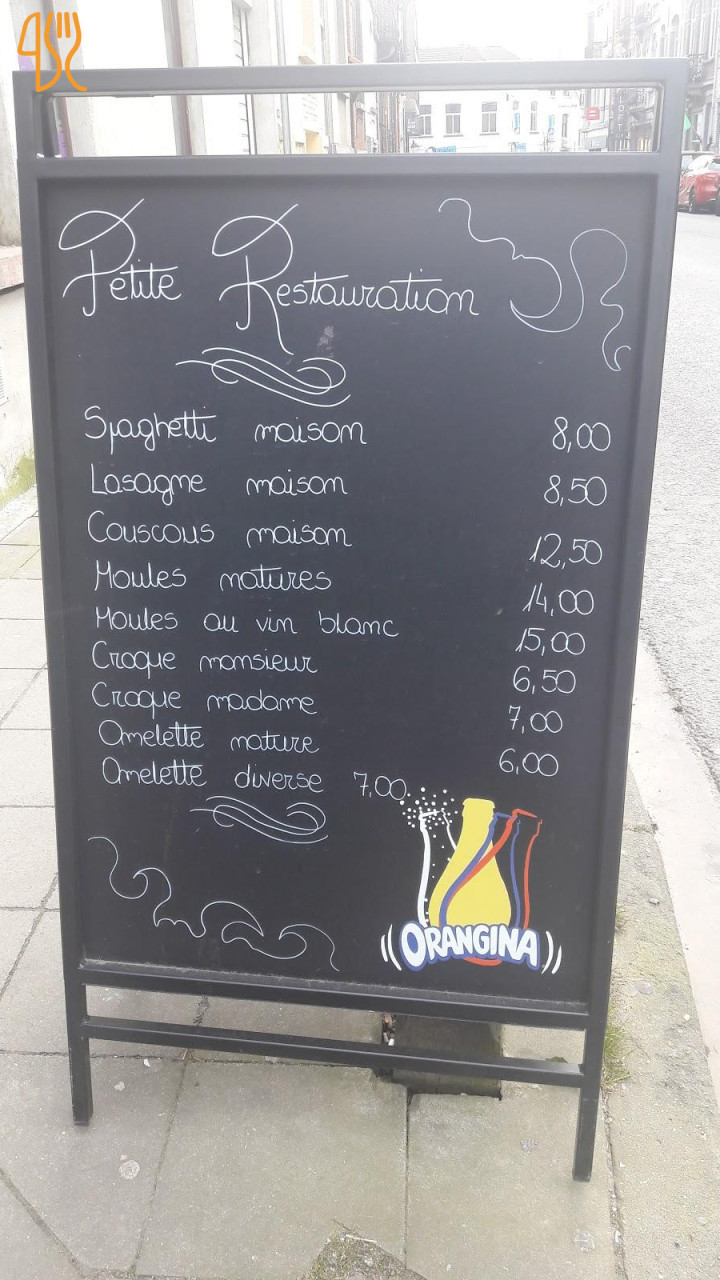 Petite Restauration
Spaghetti maison 8,00
Lasagne maison 8,50
Couscous maison 12,50
Moules natures 14,00
Moules au vin blanc 15,00
Croque monsieur 6,50
Croque madame 7,00
Omelette nature 6,00
Omelette diverse 7,00
ORANGINA